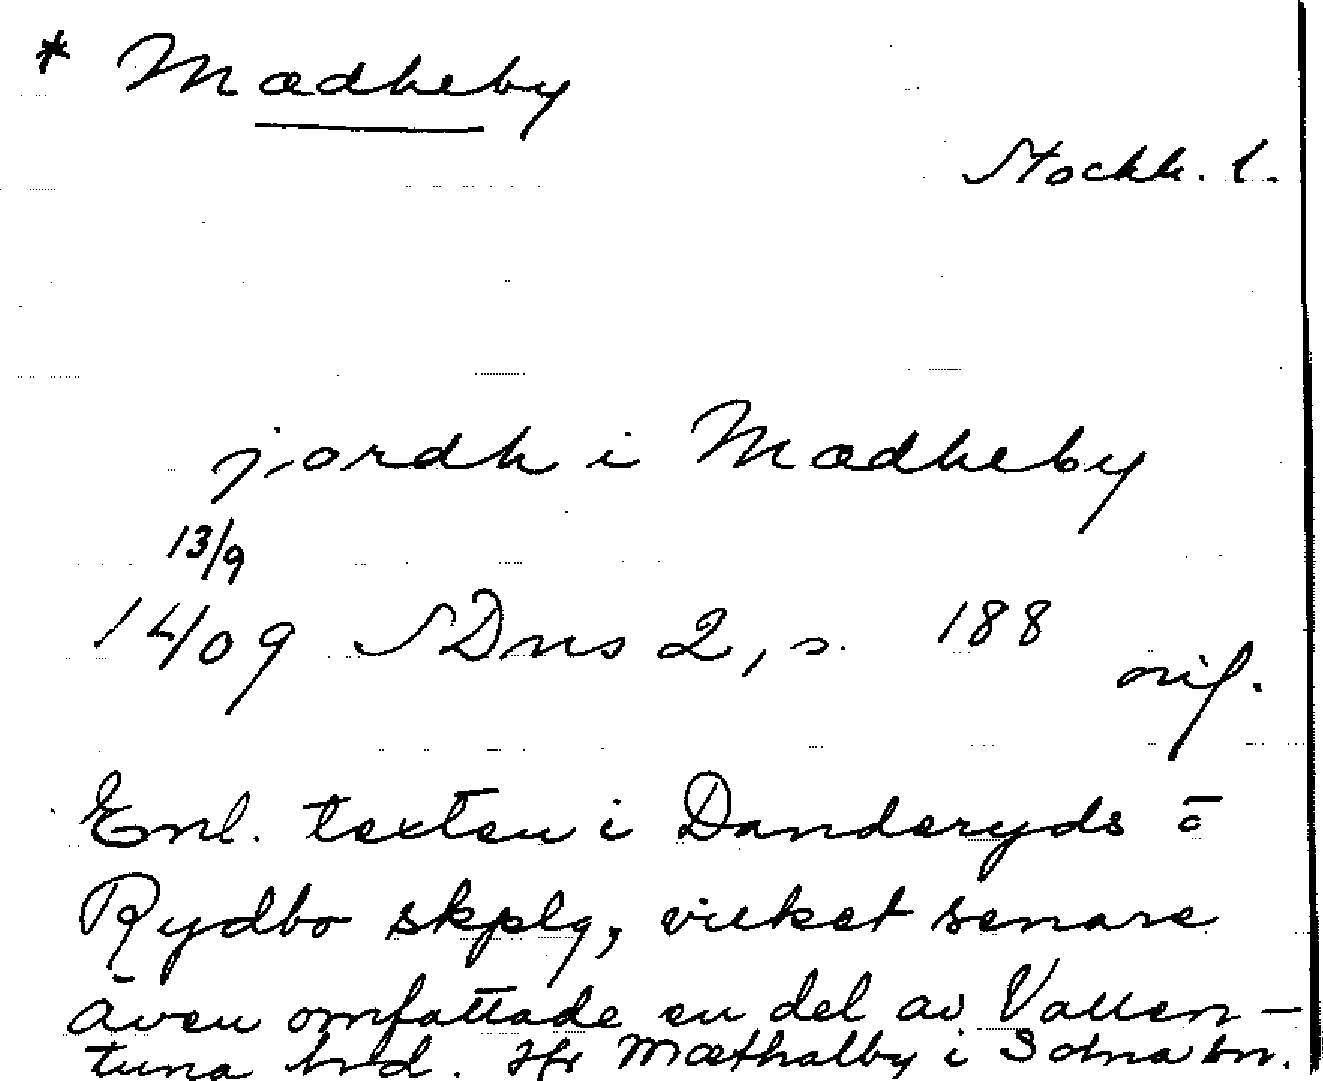 * Mædheby
Stockh. l.
jordh i Mædheby
13/9
1409 SDns 2, s. 188
orig.
Enl. texten i Danderyds o
Rydbo skplg, vilket senare
även omfattade en del av Vallen-
tuna hrd. Jfr Mæthalby i Solna sn.